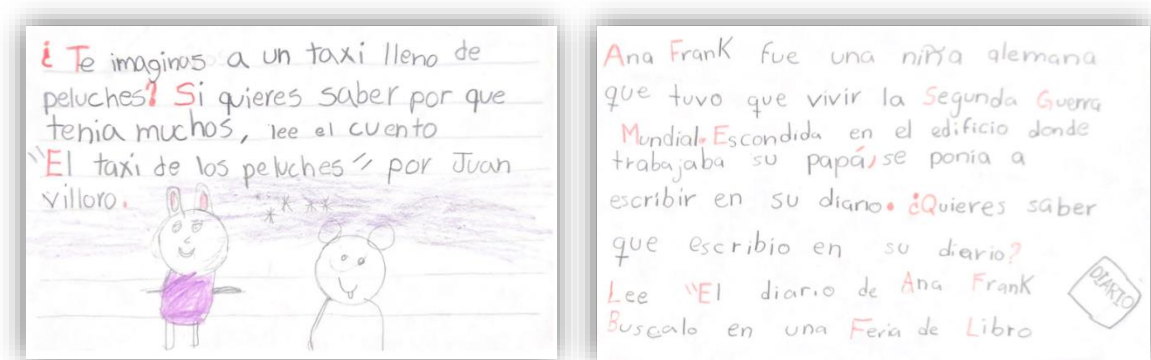 ¿Te imaginas a un taxi lleno de
peluches? Si quieres saber por que
tenia muchos, lee el cuento
"El taxi de los peluches" por Juan
villoro.
Ana Frank fue una niña alemana
que tuvo que vivir la Segunda Guerra
Mundial. Escondida en el edificio donde
trabajaba su papá, se ponia a
escribir en su diario. ¿Quieres saber
que escribio en su diario?
Lee "El diario de Ana Frank
Buscalo en una Feria de Libro
DIARIO